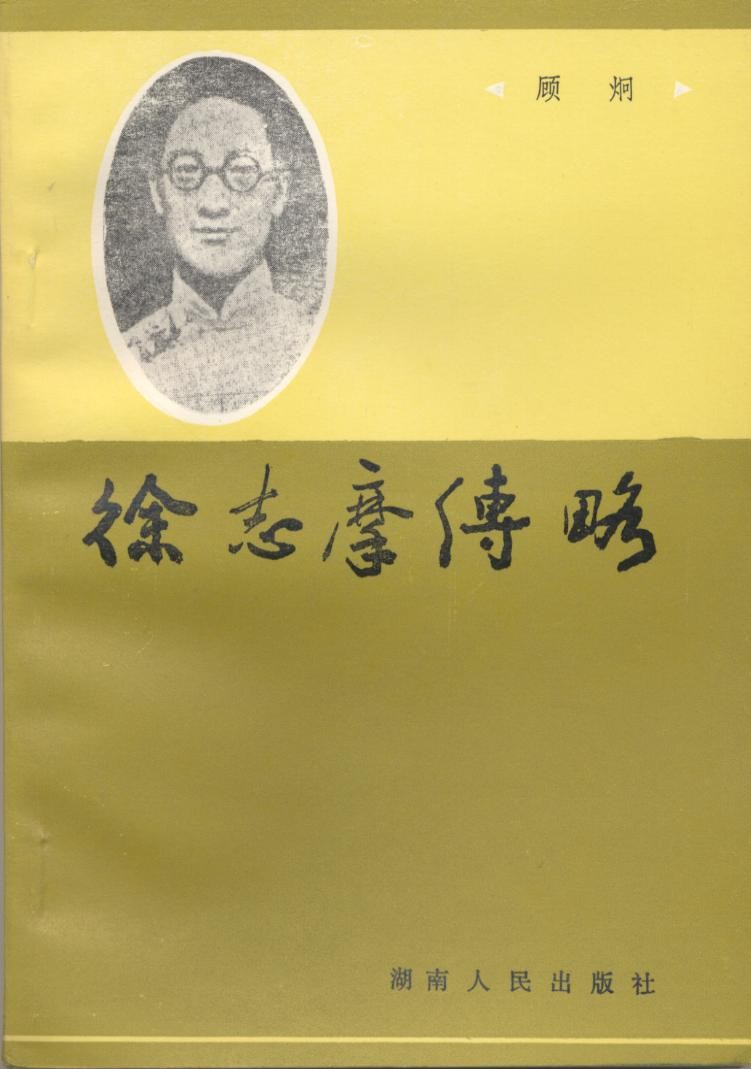 顾炯
徐志摩傳略
湖南人民出版社